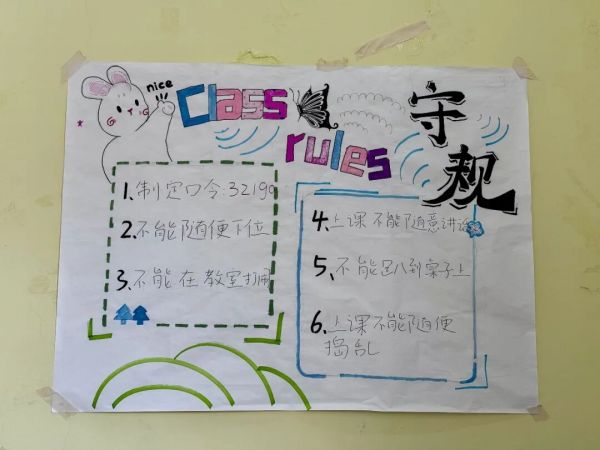 nice
Class
rules
守规
1.制定口令:321go
2.不能随便下位
3.不能在教室打闹
4.上课不能随意讲话
5、不能趴到桌子上
6.上课不能随便
捣乱